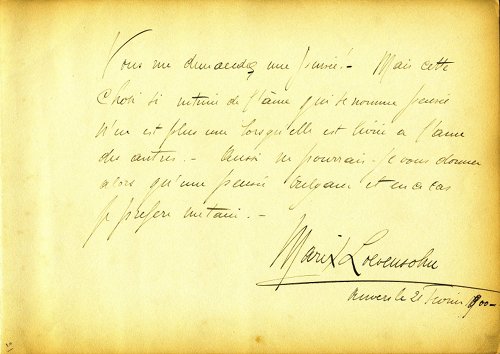 Vous me demandez une pensée! - Mais cette
chose si intime de l'âme qui se nomme pensée
n'en est plus une lorsqu'elle est livrée a l'âme
des autres. - Aussi ne pourrais-je vous donner
alors qu'une pensée vulgaire et en ce cas
je préfère me taire. -
Marix Loevensohn
Anvers le 21 Février 1900-